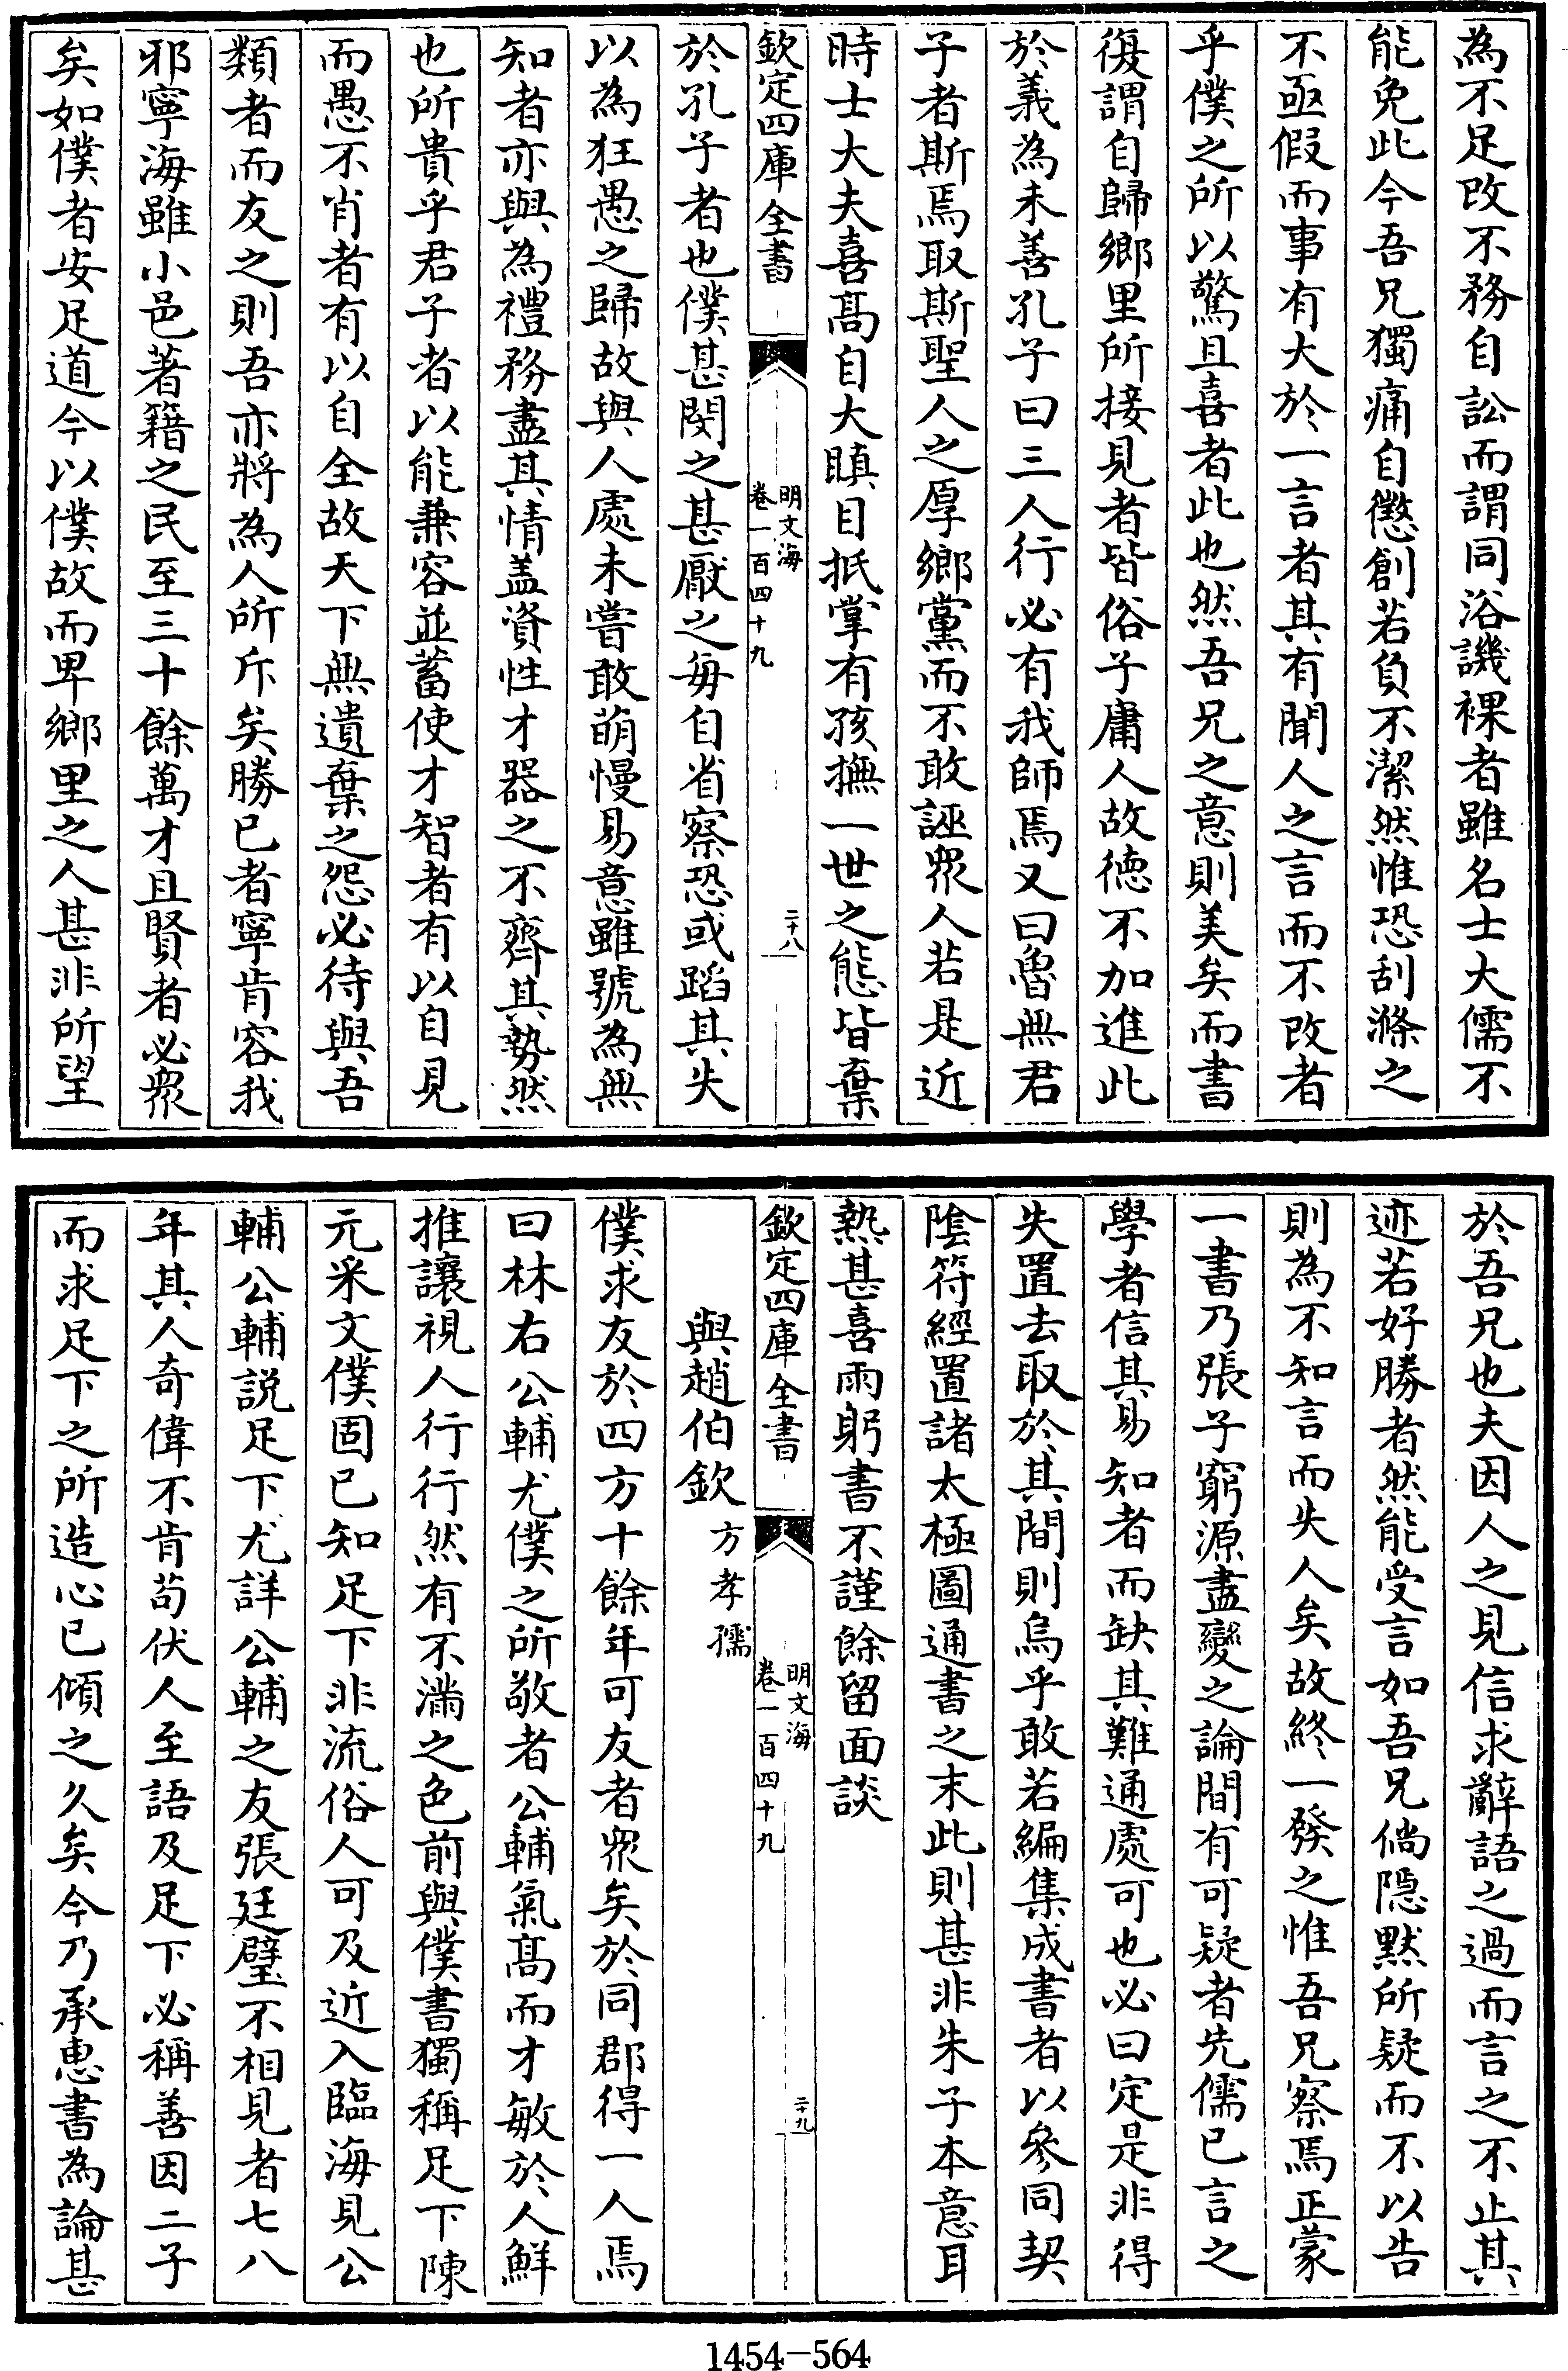 為不足改不務自訟而謂同浴譏裸者雖名士大儒不
能免此今吾兄獨痛自懲創若負不潔然惟恐刮滌之
不亟假而事有大於一言者其有聞人之言而不改者
乎僕之所以驚且喜者此也然吾兄之意則美矣而書
復謂自歸鄉里所接見者皆俗子庸人故德不加進此
於義為未善孔子曰三人行必有我師焉又曰魯無君
子者斯焉取斯聖人之厚鄉黨而不敢誣衆人若是近
時士大夫喜髙自大瞋目抵掌有孩撫一世之態皆棄
欽定四庫全書
明文海
卷一百四十九
二十八
於孔子者也僕甚閔之甚厭之毎自省察恐或蹈其失
以為狂愚之歸故與人處未嘗敢萌慢易意雖號為無
知者亦與為禮務盡其情盖資性才器之不齊其勢然
也所貴乎君子者以能兼容並蓄使才智者有以自見
而愚不肖者有以自全故天下無遺棄之怨必待與吾
類者而友之則吾亦將為人所斥矣勝已者寧肯容我
邪寧海雖小邑著籍之民至三十餘萬才且賢者必衆
矣如僕者安足道今以僕故而卑鄉里之人甚非所望
於吾兄也夫因人之見信求辭語之過而言之不止其
迹若好勝者然能受言如吾兄倘隠黙所疑而不以告
則為不知言而失人矣故終一發之惟吾兄察焉正蒙
一書乃張子窮源盡變之論間有可疑者先儒已言之
學者信其易知者而缺其難通處可也必曰定是非得
失置去取於其間則烏乎敢若編集成書者以參同契
陰符經置諸太極圖通書之末此則甚非朱子本意耳
熱甚喜雨躬書不謹餘留面談
欽定四庫全書
明文海
卷一百四十九
二十九
與趙伯欽 方孝孺
僕求友於四方十餘年可友者衆矣於同郡得一人焉
曰林右公輔尤僕之所敬者公輔氣髙而才敏於人鮮
推讓視人行行然有不滿之色前與僕書獨稱足下陳
元采文僕固已知足下非流俗人可及近入臨海見公
輔公輔説足下尤詳公輔之友張廷璧不相見者七八
年其人奇偉不肯茍伏人至語及足下必稱善因二子
而求足下之所造心已傾之久矣今乃承惠書為論甚
1454-564